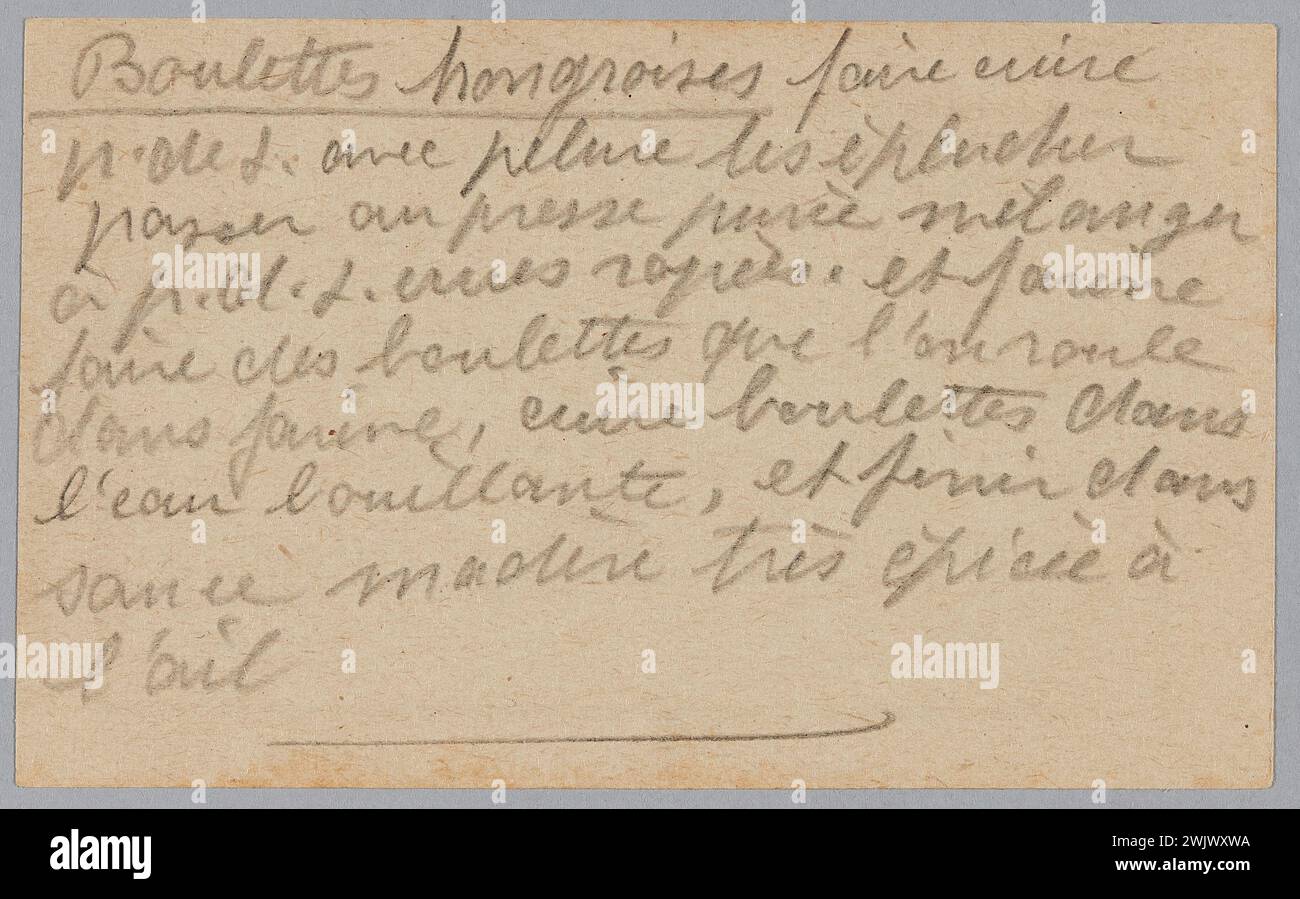 Boulettes hongroises faire cuire
p. de t. avec pelure les éplucher
passer au presse purée mélanger
à p. d. t. crues rapées. et farine
faire des boulettes que l'on roule
dans farine, cuire boulettes dans
l'eau bouillante, et finir dans
sauce madère très épicée à
l'ail
alamy
Image ID: 2WJWXWA
www.alamy.com